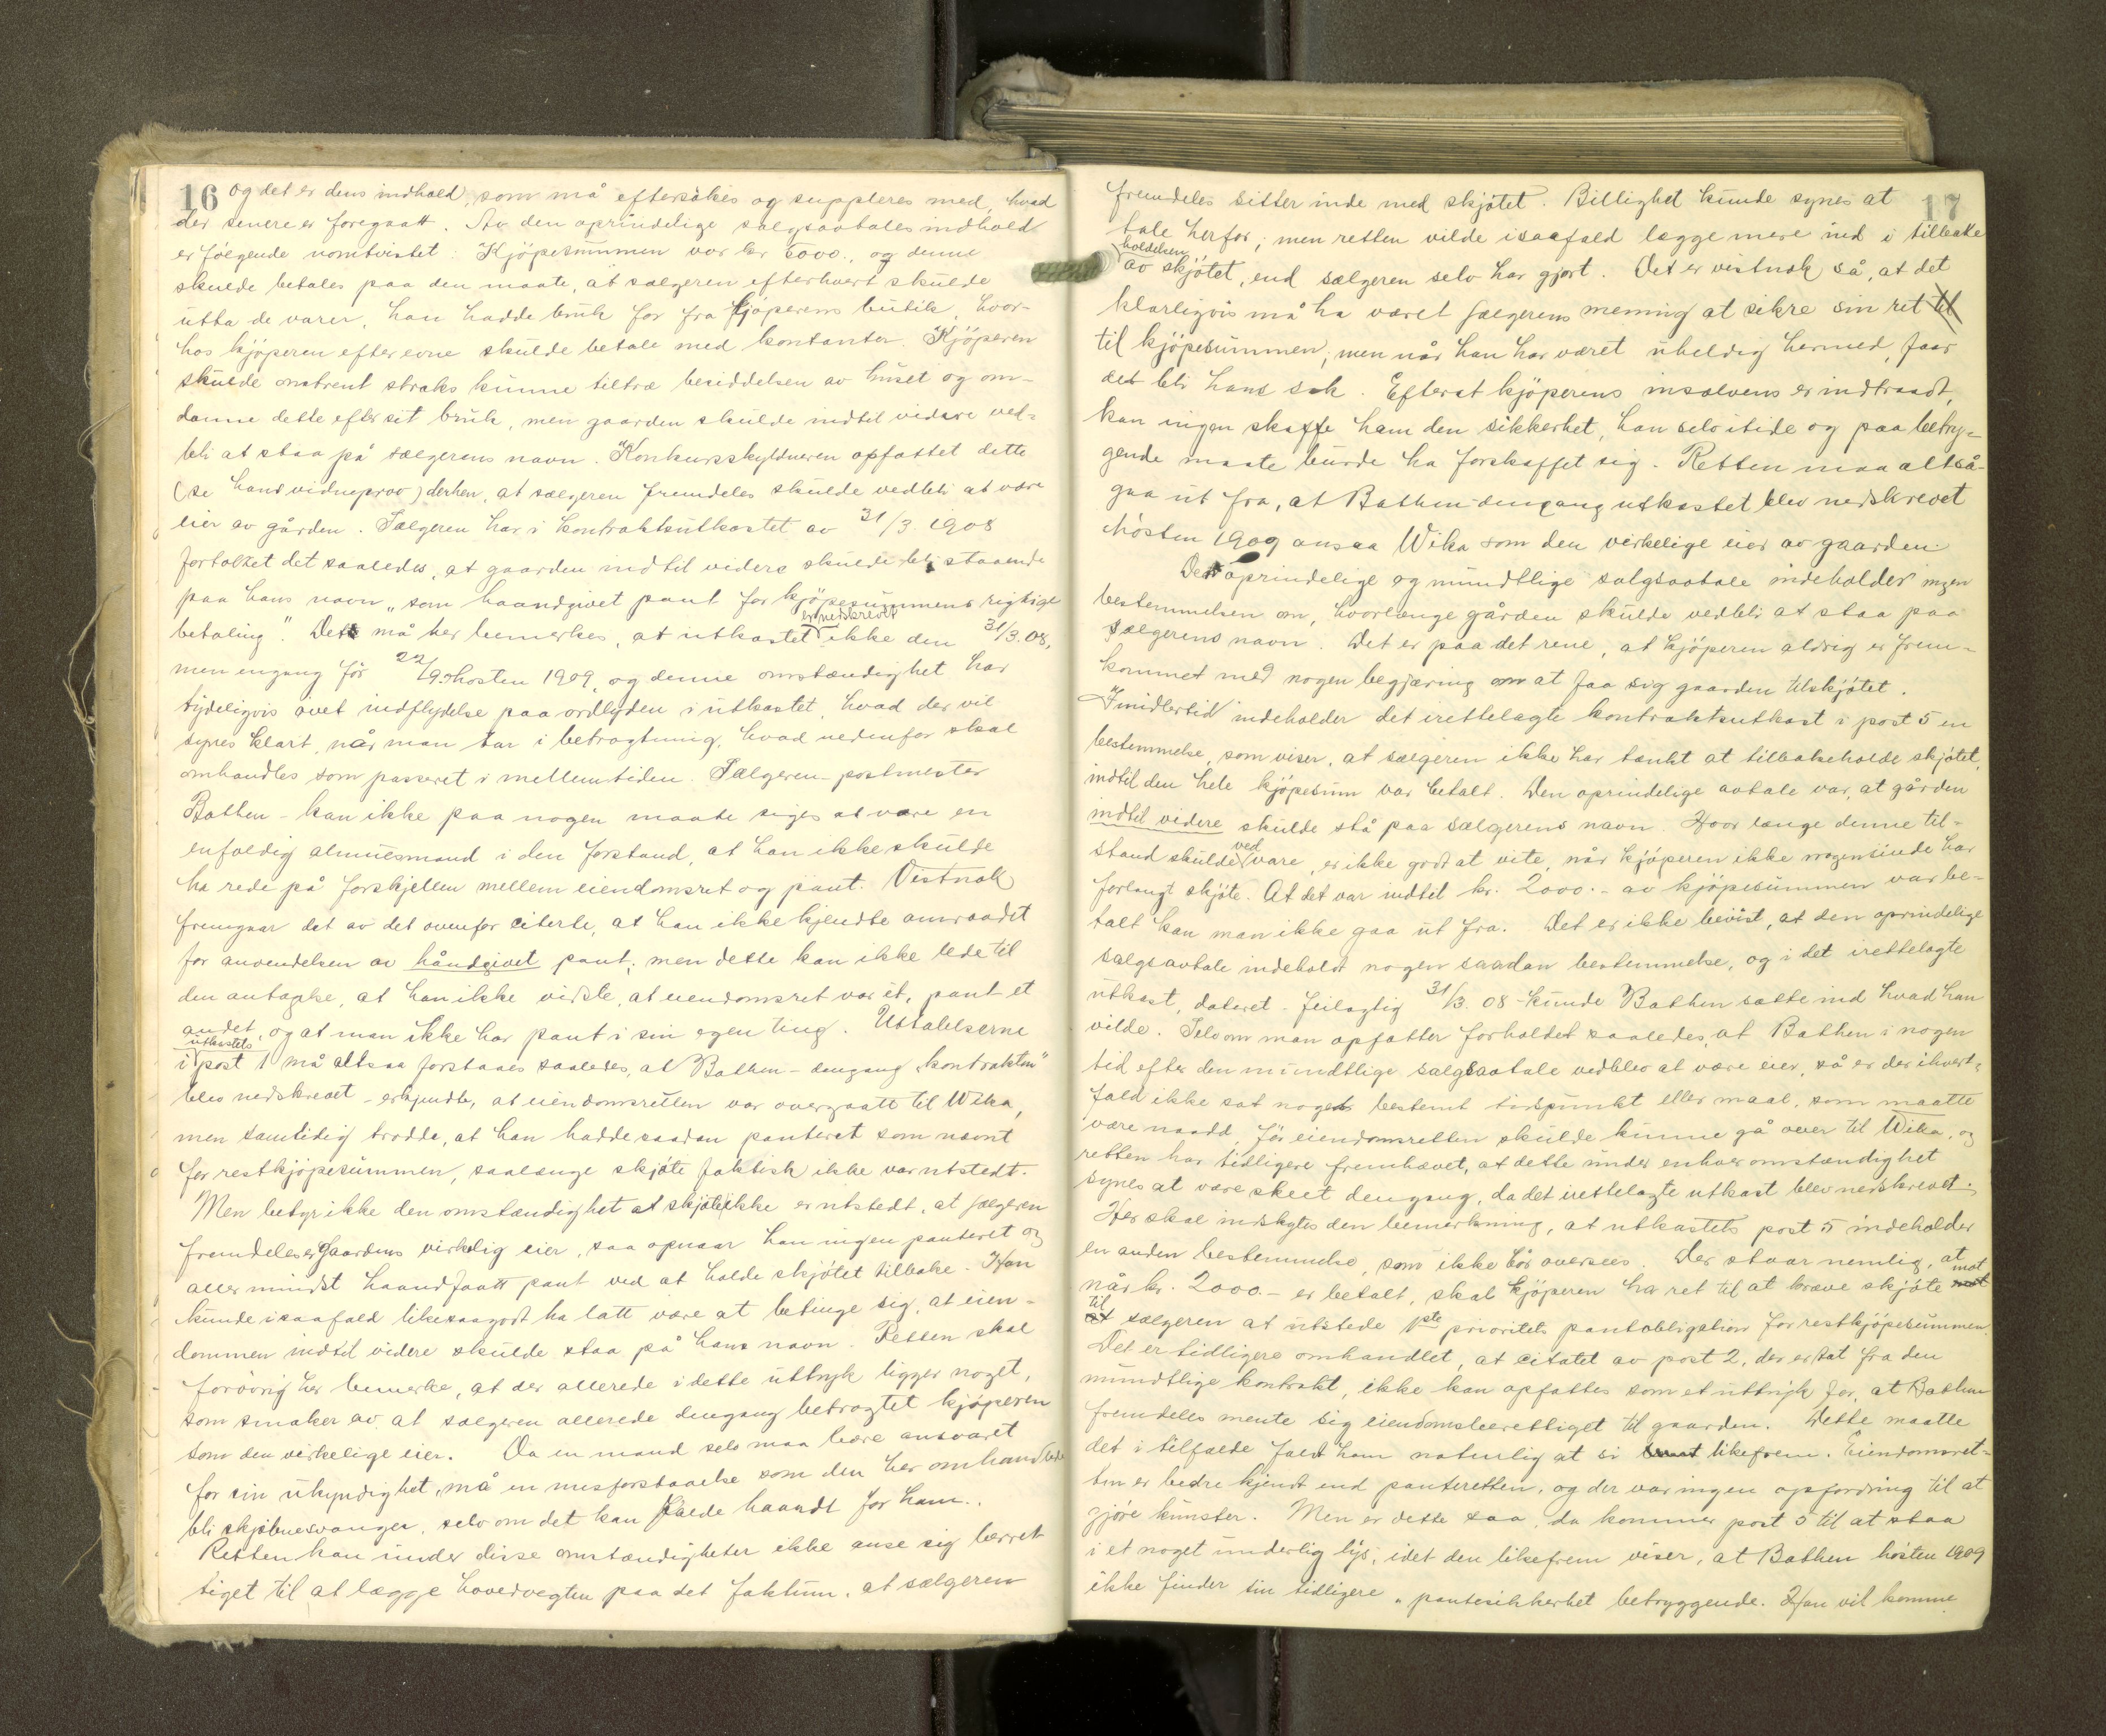 16 og det er dens indhold, som må eftersökes og suppleres med, hvad
der senere er foregaatt. Av den oprindelige salgsavtales indhold
er følgende uomtvistet: Kjöpesummen var kr 5000., og denne
skulde betales paa den maate, at sælgeren efterhvert skulde
utta de varer, han hadde bruk for fra kjöperens butik, hvor-
hos kjöperen efter evne skulde betale med kontanter. Kjöperen
skulde omtrent straks kunne tiltræ besiddelsen av huset og om-
danne dette efter sit bruk, men gaarden skulde indtil videre ved-
bli at staa på sælgerens navn. Konkursskyldneren opfattet dette
(se hans vidneprov) derhen, at sælgeren fremdeles skulde vedbli at være
eier av gården. Sælgeren har i kontraktsutkastet av 31/3 1908
fortolket det saaledes, at gaarden indtil videre skulde bli staaende
paa hans navn „som haandgivet pant for kjöpesummens rigtige
betaling". Det må her bemerkes, at utkastet er nedskrevet ikke den 31/3.08,
men engang för 22/9 høsten 1909, og denne omstændighet har
tydeligvis övet indflydelse paa ordlyden i utkastet, hvad der vil
synes klart, når man tar i betragtning, hvad nedenfor skal
omhandles som passeret i mellemtiden. Sælgeren - postmester
Bathen - kan ikke paa nogen maate siges at være en
enfoldig almuesmand i den forstand, at han ikke skulde
ha rede på forskjellen mellem eiendomsret og pant. Vistnok
fremgaar det av det ovenfor citerte, at han ikke kjendte omraadet
for anvendelsen av håndgivet pant; men dette kan ikke lede til
den antagelse, at han ikke visste, at eiendomsret var ét, pant et
andet, og at man ikke har pant i sin egen ting. Uttalelserne
i utkastets post 1 må altsaa forstaaes saaledes, at Bathen - dengang „kontrakten"
blev nedskrevet - erkjendte, at eiendomsretten var overgaatt til Wika,
men samtidig trodde, at han hadde saadan panteret som nævnt
for restkjöpesummen, saalænge skjöte faktisk ikke var utstedt.
Men betyr ikke den omstændighet at skjöte ikke er utstedt, at sælgeren
fremdeles er gaardens virkelig eier, saa opnaar han ingen panteret og
allermindst haandfaatt pant ved at holde skjötet tilbake. Han
kunde isaafald likesaagodt ha latt være at betinge sig, at eien-
dommen indtil videre skulde staa på hans navn. Retten skal
forövrig her bemerke, at der allerede i dette uttryk ligger noget,
som smaker av at sælgeren allerede dengang betragtet kjöperen
som den virkelige eier. Da en mand selv maa bære ansvaret
for sin ukyndighet, må en misforstaaelse som den her omhandlede
bli skjæbnesvanger, selv om det kan falde haardt for ham..
Retten kan under disse omstændigheter ikke anse sig berret-
tiget til at lægge hovedvegten paa det faktum, at sælgeren
17
fremdeles sitter inde med skjötet. Billighet kunde synes at
tale herfor; men retten vilde isaafald lægge mere ind i tilbake
holdelsen av skjötet, end sælgeren selv har gjort. Det er vistnok så, at det
klarligvis må ha været sælgerens mening at sikre sin ret til
til kjöpesummen; men når han har været uheldig hermed, faar
det bli hans sak. Efterat kjöperens insolvens er indtraadt,
kan ingen skaffe ham den sikkerhet, han selv itide og paa betryg-
gende maate burde ha forskaffet sig. Retten maa altså
gaa ut fra, at Bathen dengang utkastet blev nedskrevet
hösten 1909 ansaa Wika som den virkelige eier av gaarden.
Den oprindelige og mundtlige salgsavtale indeholder ingen
bestemmelsen om, hvorlænge gården skulde vedbli at staa paa
sælgerens navn. Det er paa det rene, at kjöperen aldrig er frem-
kommet med nogen begjæring om at faa sig gaarden tilskjötet.
Imidlertid indeholder det irettelagte kontraktsutkast i post 5 en
bestemmelse, som viser, at sælgeren ikke har tænkt at tilbakeholde skjötet,
indtil den hele kjöpesum var betalt. Den oprindelige avtale var, at gården
indtil videre skulde stå paa sælgerens navn. Hvor længe denne til-
stand skulde vedvare, er ikke godt at vite, når kjöperen ikke nogensinde har
forlangt skjöte. At det var indtil kr. 2000.- av kjöpesummen var be-
talt kan man ikke gaa ut fra. Det er ikke bevist, at den oprindelige
salgsavtale indeholdt nogen saadan bestemmelse, og i det irettelagte
utkast, dateret - feilagtig 31/3. 08 - kunde Bathen sætte ind hvad han
vilde. Selv om man opfatter forholdet saaledes, at Bathen i nogen
tid efter den mundtlige salgsavtale vedblev at være eier, så er der ihvert-
fald ikke sat noget bestemt tidspunkt eller maal, som maatte
være naadd, för eiendomsretten skulde kunne gå over til Wika, og
retten har tidligere fremhævet, at dette under enhver omstændighet
synes at være skeet dengang, da det irettelagte utkast blev nedskrevet.
Her skal indskytes den bemerkning, at utkastets post 5 indeholder
en anden bestemmelse, som ikke bör oversees. Der staar nemlig, at
når kr. 2000.- er betalt, skal kjöperen ha ret til at kræve skjöte mot
til sælgeren at utstede 1ste prioritets pantobligation for restkjöpesummen.
Det er tidligere omhandlet, at citatet av post 2, der er tat fra den
mundtlige kontrakt, ikke kan opfattes som et uttryk for, at Bathen
fremdeles mente sig eiendomsberettiget til gaarden. Dette maatte
det i tilfælde faldt ham naturlig at si likefrem. Eiendomsret-
ten er bedre kjendt end panteretten, og der var ingen opfordring til at
gjöre kunster. Men er dette saa, da kommer post 5 til at staa
i et noget underlig lys, idet den likefrem viser, at Bathen hösten 1909
ikke finder sin tidligere „pantesikkerhet betryggende. Han vil komme